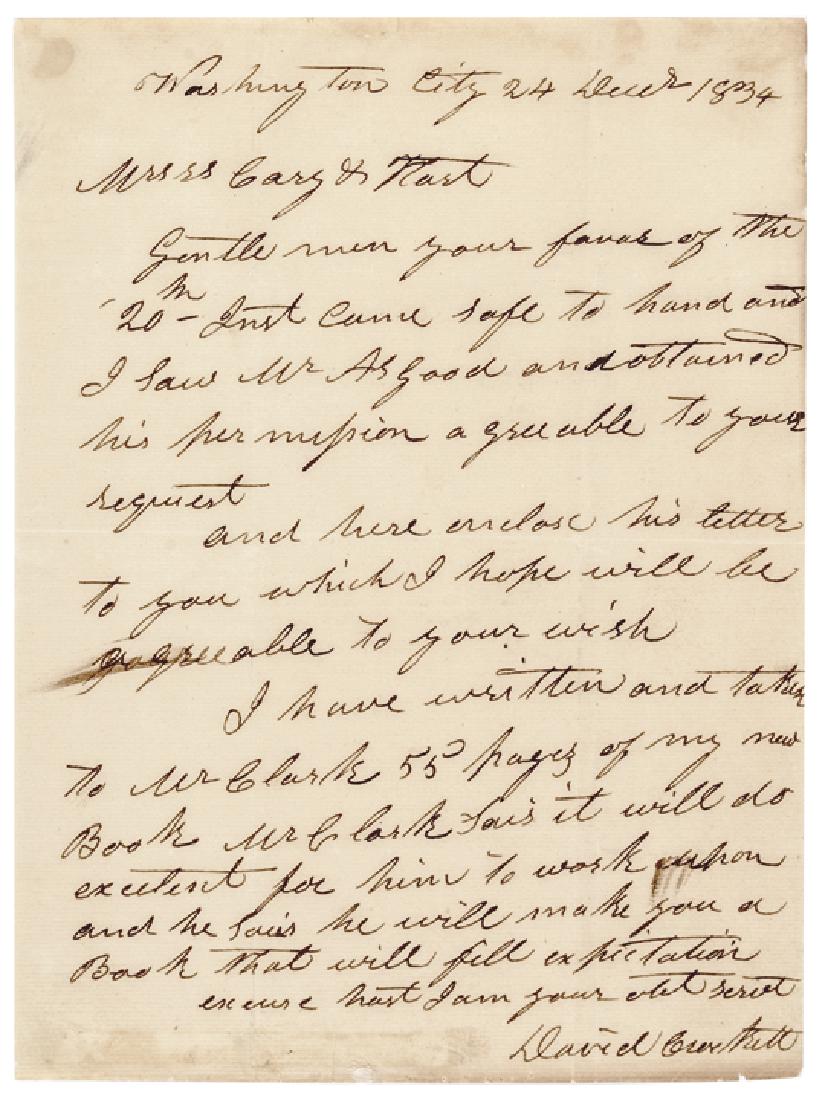 Washington City 24 Decr 1834
Mrsrs Cary & Hart
Gentle men your favor of the
20th Inst came safe to hand and
I saw Mr Asgood and obtained
his permission agreeable to your
request
and here enclose his letter
to you which I hope will be
agreeable to your wish
I have written and taken
to Mr Clark 55 pages of my new
Book Mr Clark Sais it will do
excelent for him to work upon
and he Sais he will make you a
Book that will fill expictation
excuse hast I am your obt servt
David Crockett